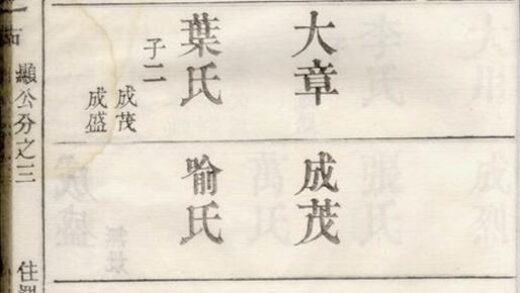 大章
葉氏
子二
成茂
成盛
成茂
喻氏
顯公分之三
住